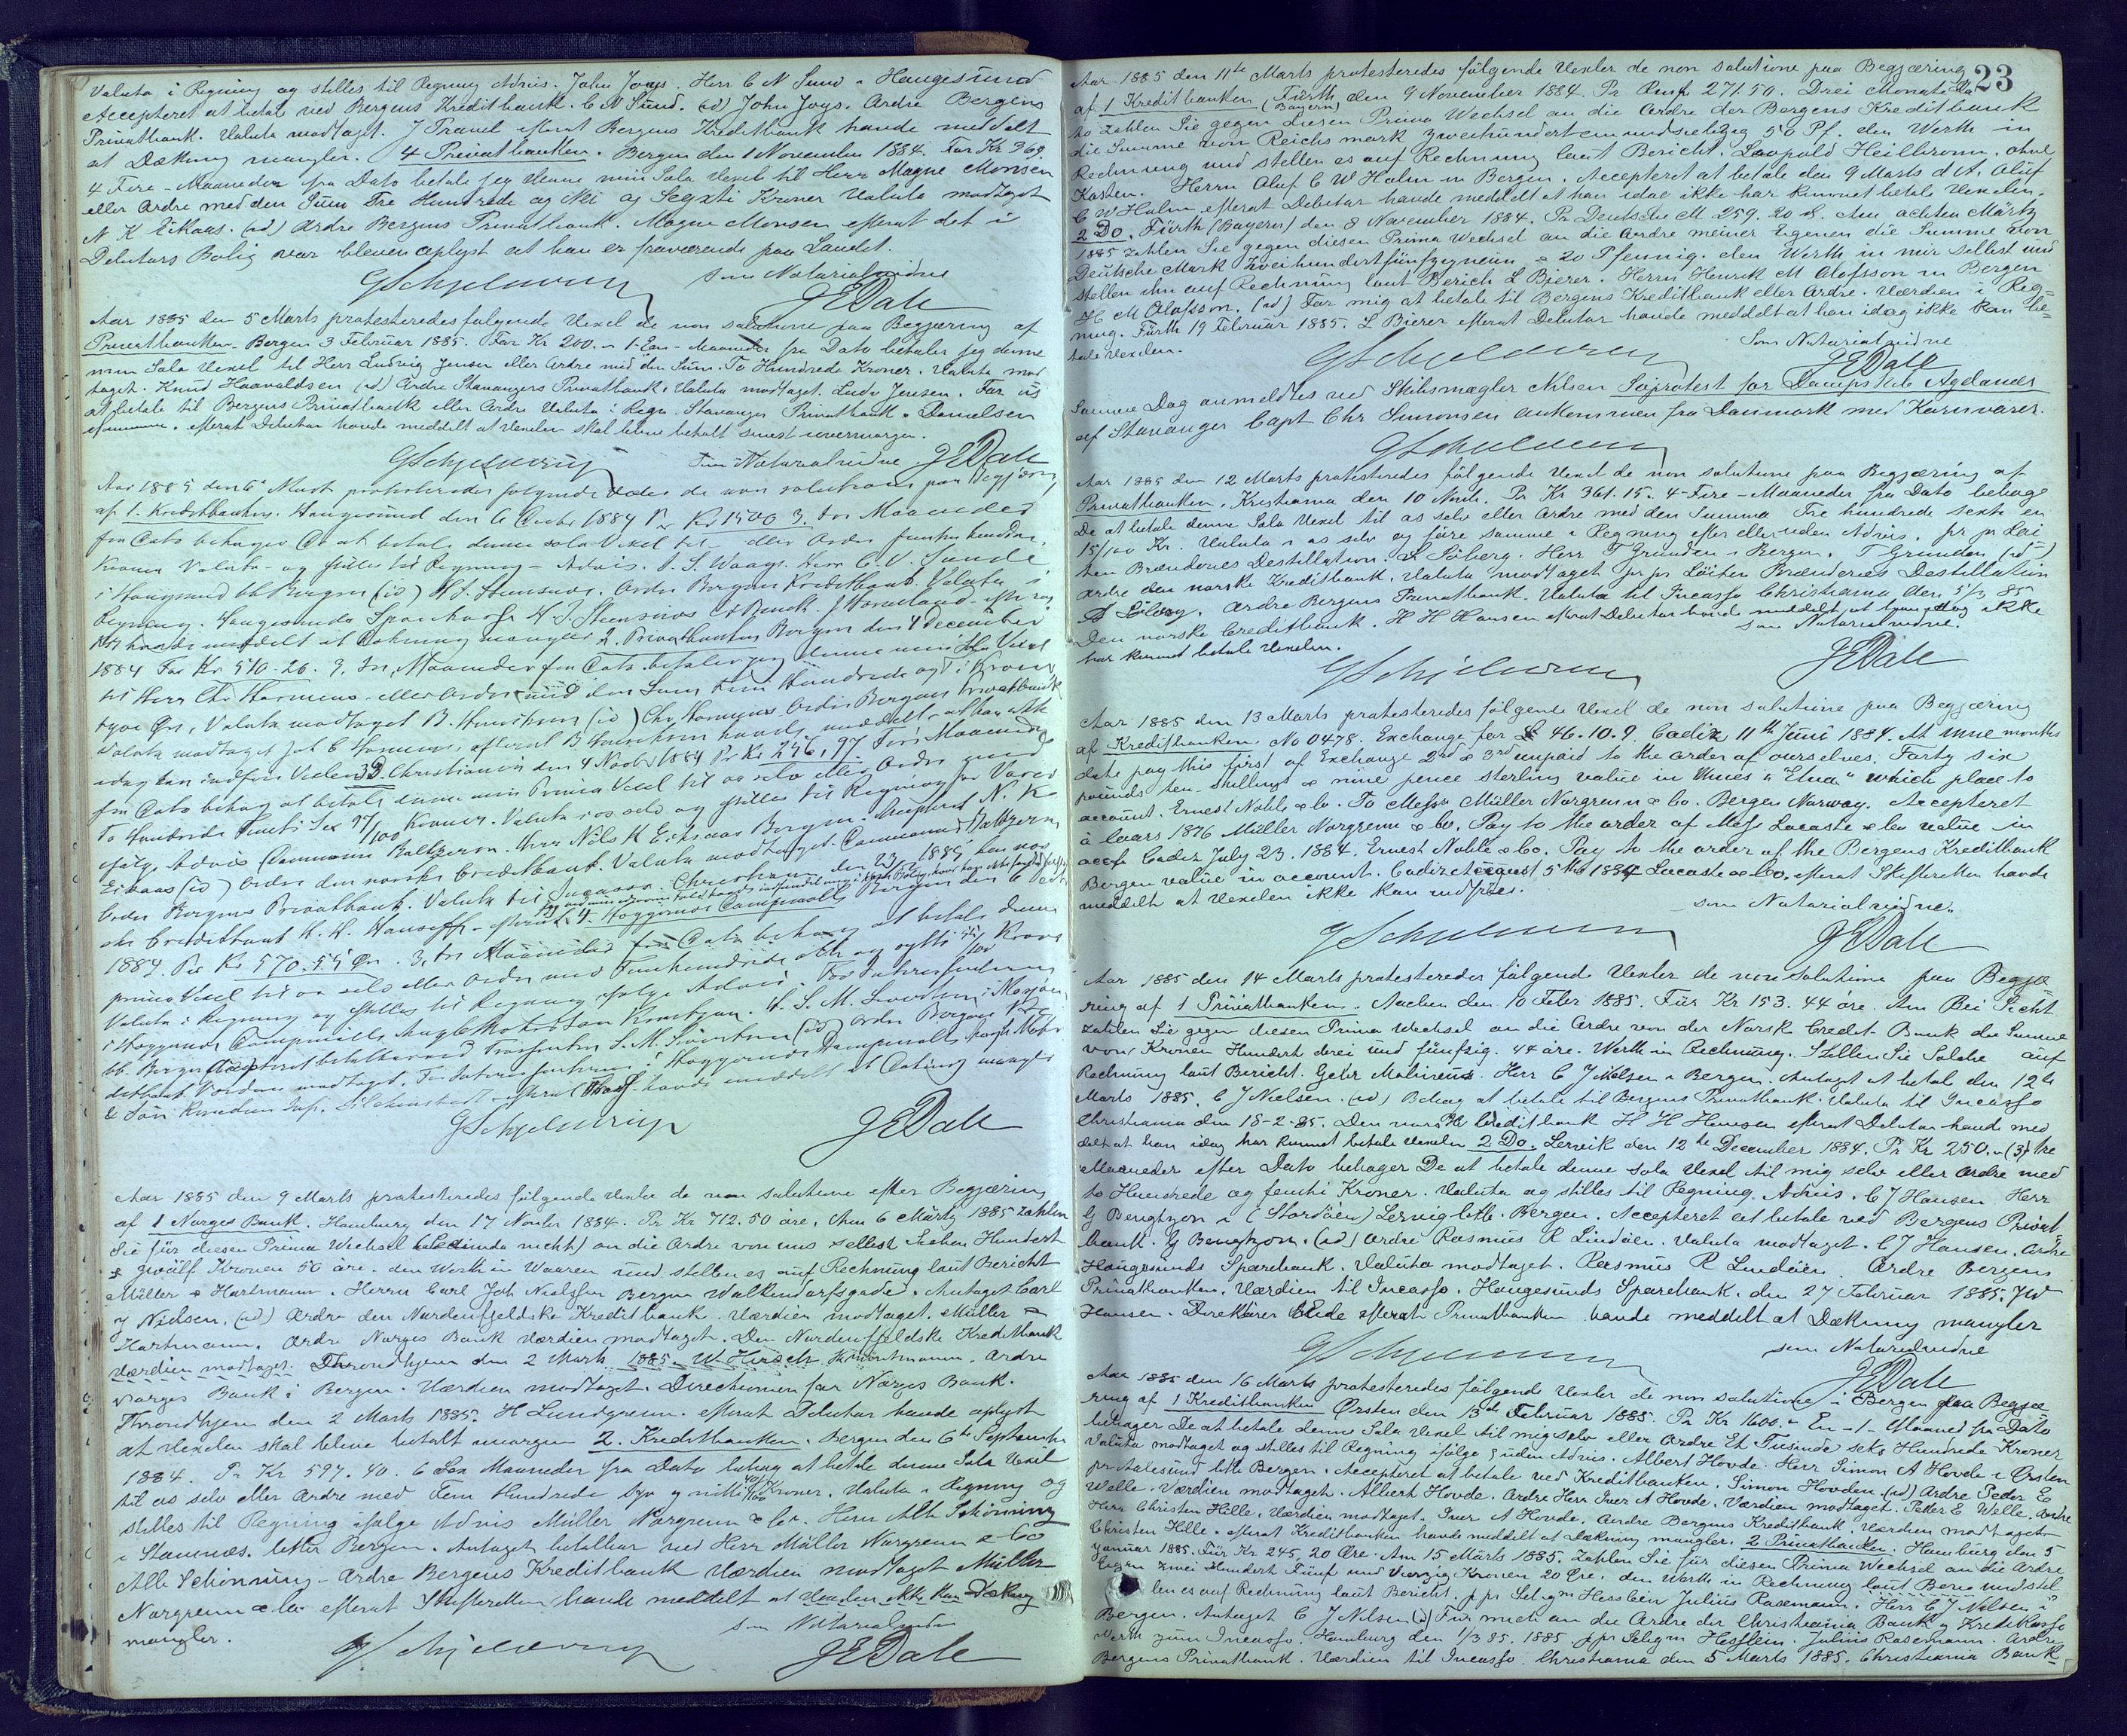 Valuta i Regning og stilles til Regning Advis. John Joys. Herr C N Sund i Haugesund
Accepteret at betale ved Bergens Kreditbank. C N Sund. (id) John Joys. Ordre Bergens
Privatbank. Valuta modtaget. J Travel efterat Bergens Kreditbank havde meddelt
at Dækning mangler. 4 Privatbanken. Bergen den 1 November 1884. For Kr 369.
4 Fire - Maaneder fra Dato betale jeg denne min Sola Vexel til Herr Magne Monsen
eller Ordre med den Sum Tre Hundrede og Ni og Segxti Kroner Valuta modtaget
N K Eikaas. (id) Ordre Bergens Privatbank. Magne Monsen efterat det i
Debitors Bolig var bleven oplyst at han er fraværende paa Landet.
G Schjelderup som Notarialvidne
J E Dale
Aar 1885 den 5 Marts protesteredes følgende Vexel de non solutione paa Begjæring af
Privatbanken. Bergen 3 Februar 1885. For Kr 200. 1 - Een - Maaneder fra Dato betaler jeg denne
min Sola Vexel til Herr Ludvig Jensen eller Ordre med den Sum. To Hundrede Kroner. Valuta mod
taget. Knud Haavaldsen (id) Ordre Stavangers Privatbank. Valuta modtaget. Ludv Jensen. For os
at betale til Bergens Privatbank eller Ordre Valuta i Regn. Stavanger Privatbank. Danielsen
efterat Debitor havde meddelt at Vexelen skal blive betalt senest overmorgen.
G Schjelderup som Notarialvidne J E Dale
Aar 1885 den 6 Marts protesteredes følgende Vexler de non solutione paa Begjæring
af 1. Kreditbanken. Haugesund den 6 Decbr 1884 Pr Kr 1500 3. tre Maaneder
fra Dato behager De at betale denne sola Vexel til eller Ordre femten hundrede
Kroner Valuta og stilles til Regning - Advis. J. S. Waage. Herr C. V. Sunde
i Haugesund bb Bergen (id) H J. Steensnæs. Ordre Bergens Kreditbank. Valuta i
Regning. Haugesunds Sparebank H J. Steensnæs efterat
havde meddelt at Dækning mangler 2. Privatbanken Bergen den 4 December
1884 For Kr 510. 20. 3. tre Maaneder fra Dato betaler jeg denne min Sola Vexel
til Herr Chr Hornemo eller Ordre med den Sum Fem Hundrede og Ti Kroner
tyve Øre, Valuta modtaget B. Henriksen (id) Chr. Ordre Bergens Privatbank
Valuta modtaget efterat B Henriksen havde meddelt at han ikke
idag kan indfri Vexlen 3. Do. Christiania den 4 Novbr 1884 Pr Kr 246,97. Fire Maaneder
fra Dato behag at betale denne min Prima Vexel til os selv eller Ordre med
To Hundrede Femti Sex 97/100 Kroner. Valuta i os selv og stilles til Regning for Varer
ifølge Advis Herr Nils K Eikaas Bergen. Accepteret N. K
Eikaas (id) Ordre den norske Creditbank. Valuta modtaget.
Ordre Bergens Privatbank. Valuta til Incasso. Christiania den 23/2 1885 den nor
ske Creditbank H. H. Hansen efterat 4. Bergen den 6 Decbr
1884. Pr Kr 570.55 Øre. 3, tre Maaneder fra Dato behag at betale denne
prima Vexel til os selv eller Ordre med Femhundrede og sytti 55/100 Kroner
Valuta i Regning og stilles til Regning ifølge Advis.
bb. Bergen Accepteret Ordre Bergens Kre
ditbank Værdien modtaget. havde meddelt at Dækning mangler
G Schjelderup J E Dale
Aar 1885 den 9 Marts protesteredes følgende Vexler de non solutione efter Begjæring
af 1 Norges Bank. Hamburg den 17 Novbr 1884. Pr Kr 712.50 øre. Am 6 Märtz 1885 zahlen
Sie für diesen Prima Wechsel (Secunda nicht) an die Ordre von uns selbst Sieben Hundert
& zwölf Kronen 50 øre. den Werth in Waaren und stellen es auf Rechnung laut Bericht
Müller & Hartmann. Herrn Carl Joh Nielsen Bergen Walkendorfsgade. Antaget Carl
J Nielsen. (id) Ordre den Nordenfjeldske Kreditbank. Værdien modtaget. Müller &
Hartmann. Ordre Norges Bank Værdien modtaget. Den Nordenfjeldske Kreditbank
Værdien modtaget. Throndhjem den 2 Marts 1885. W. Hirsch. Ordre
Norges Bank i Bergen. Værdien modtaget. Directionen for Norges Bank.
Throndhjem den 2 Marts 1885. H Lundgreen. efterat Debitor havde oplyst
at Vexelen skal blive betalt imorgen 2. Kreditbanken. Bergen den 6te September
1884. Pr Kr 597.40. 6 Sex Maaneder fra Dato behag at betale denne Sola Vexel
til os selv eller Ordre med Fem Hundrede Syv og nitti 40/100 Kroner. Valuta i Regning og
stilles til Regning ifølge Advis Müller Norgreen & Co. Herrn Alb Schönning
i Stamnæs. letter Bergen. Antaget betalbar ved Herr Müller Norgreen & Co
Alb Schönning. Ordre Bergens Kreditbank Værdien modtaget Müller
Norgreen & Co. efterat Skifteretten havde meddelt at Dækning
mangler.
som Notarialvidne
G Schjelderup J E Dale
23
Aar 1885 den 11te Marts protesteredes følgende Vexler de non solutione paa Begjæring
af 1 Kreditbanken (Bayern) Fürth den 9 November 1884. Pr Rmk 271.50. Drei Monate da
to zahlen Sie gegen diesen Prima Wechsel an die Ordre der Bergens Kreditbank
die Summe von Reichs mark zweihundert einundsiebzig 50 Pf. den Werth in
Rechnung und stellen es auf Rechnung laut Bericht. Leopold Heilbronn. ohne
Kosten. Herrn Oluf C W Holm in Bergen. Accepteret at betale den 9 Marts d A. Oluf
C W Holm, efterat Debitor havde meddelt at han idag ikke har kunnet betale Vexelen.
2 Do. Fürth (Bayern) den 8 November 1884. Pr Deutsche M 259. 20 d. Am achten Märtz
1885 zahlen Sie gegen diesen Prima Wechsel an die Ordre meiner Eigenen die Summe von
Deutsche Mark Zweihundertfünfzigneun & 20 Pfennig. den Werth in mir selbst und
stellen ihn auf Rechnung laut Bericht L Bierer. Herrn Henrik M Olafsson in Bergen
H M Olafsson. (id) For mig at betale til Bergens Kreditbank eller Ordre. Værdien i Reg-
ning. Fürth 19 Februar 1885. L Bierer efterat Debitor havde meddelt at han idag ikke kan be-
tale Vexelen.
G Schjelderup Som Notarialvidne
J E Dale
Samme Dag anmeldtes ved Skibsmægler Nilsen Søprotest for Dampskib Agdanes
af Stavanger Capt Chr Simonsen ankommen fra Danmark med Kornvarer.
G Schjelderup
Aar 1885 den 12 Marts protesteredes følgende Vexel de non solutione paa Begjæring af
Privatbanken. Kristiania den 10 Novb. Pr Kr 361.15. 4 - Fire - Maaneder fra Dato behage
De at betale denne Sola Vexel til os selv eller Ordre med den Summa Tre hundrede sexti en
15/100 Kr. Valuta i os selv og føre samme i Regning efter eller uden Advis. pr pr Løi
ten Brænderies Destillation. L Söberg. Herr T Grunden i Bergen. T Grunden (id)
Ordre den norske Kreditbank. Valuta modtaget pr pr Löiten Brænderies Destillation
L Söberg. Ordre Bergens Privatbank. Valuta til Incasso Christiania den 5/3 85
Den norske Creditbank. H H Hansen efterat Debitor havde meddelt at han idag ikke
har kunnet betale Vexelen.
som Notarialvidne.
G Schjelderup J E Dale
Aar 1885 den 13 Marts protesteredes følgende Vexel de non solutione paa Begjæring
af Kreditbanken. No 0478. Exchange for £ 46.10.9. Cadiz 11th Juni 1884. At nine months
date pay this first of Exchange 2nd & 3rd unpaid to the order of ourselves, Forty six
pounds ten shillings & nine pence sterling value in Wines "Etna" which place to
account. Ernest Noble & Co. To Messrs Müller Norgreen & Co. Bergen Norway. Accepteret
à laars 1876 Müller Norgreen & Co. Pay to the order of Mess Lacaste & Co value in
accot Cadiz July 23. 1884. Ernest Noble & Co. Pay to the order of the Bergens Kreditbank
Bergen value in account. Cadiz August 5th 1884 Lacaste & Co. efterat Skifteretten havde
meddelt at Vexelen ikke kan indfries.
som Notarialvidne.
G Schjelderup J E Dale
Aar 1885 den 14 Marts protesteredes følgende Vexler de non solutione paa Begjæ
ring af 1 Privatbanken. Aachen den 10 Febr 1885. Für Kr 153.44 øre. Am Bei Sicht
zahlen Sie gegen diesen Prima Wechsel an die Ordre von der Norsk Credit Bank die Summe
von Kronen Hundert drei und fünfzig. 44 øre. Werth in Rechnung. Stellen Sie Solche auf
Rechnung laut Bericht. Gebr Herr C J Nielsen i Bergen. Antaget at betale den 12te
Marts 1885. C J Nielsen. (id) Behag at betale til Bergens Privatbank. Valuta til Incasso
Christiania den 18-2-85. Den norske Creditbank H H Hansen efterat Debitor havde med
delt at han idag har kunnet betale Vexelen 2 Do. Lervik den 12te December 1884. Pr Kr 250. (3) tre
Maaneder efter Dato behager De at betale denne sola Vexel til mig selv eller Ordre med
to Hundrede og femti Kroner. Valuta og stilles til Regning. Advis. C J Hansen Herr
G Bengtzon i (Stordöen) Lervig lette Bergen. Accepteret at betale ved Bergens Privat
bank. G Bengtzon. (id) Ordre Rasmus R Lindöen. Valuta modtaget. C J Hansen. Ordre
Haugesunds Sparebank. Valuta modtaget. Rasmus R Lindöen. Ordre Bergens
Privatbanken. Værdien til Incasso. Haugesunds Sparebank. den 27 Februar 1885. J W
Hansen. Direktører Eide efterat Privatbanken havde meddelt at Dækning mangler
som Notarialvidne
G Schjelderup J E Dale
Aar 1885 den 16 Marts protesteredes følgende Vexler de non solutione i Bergen paa Begjæ
ring af 1 Kreditbanken Ørsten den 13de Februar 1885. Pr Kr 1600. En - 1 - Maaned fra Dato
behager De at betale denne Sola Vexel til mig selv eller Ordre Et Tusinde seks Hundrede Kroner
Valuta modtaget og stilles til Regning ifølge / uden Advis. Albert Hovde. Herr Simon A Hovde i Ørsten
pr Aalesund lette Bergen. Accepteret at betale ved Kreditbanken. Simon Hovden (id) Ordre Peder E
Welle. Værdien modtaget. Albert Hovde. Ordre Herr Iver A Hovde. Værdien modtaget. Peder E Welle. Ordre
Herr Christen Hille. Værdien modtaget. Iver A Hovde. Ordre Bergens Kreditbank. Værdien modtaget
Christen Hille. efterat Kreditbanken havde meddelt at Dækning mangler. 2 Privatbanken. Hamburg den 5
Januar 1885. Für Kr 245. 20 Øre. Am 15 Märts 1885. Zahlen Sie für diesen Prima Wechsel an die Ordre
zwei Hundert Fünf und Vierzig Kronen 20 Øre. den Werth in Rechnung laut Beric und stel
len es auf Rechnung laut Bericht. p pr Seligm Hesslein Julius Rosemann. Herr C J Nilsen i
Bergen. Antaget C J Nilsen (id) Für mich an die Ordre der Christiania Bank & Kreditkasse
Werth zum Incasso. Hamburg den 1/3 85. 1885 p pr Seligm Hesslein. Julius Rosemann. Ordre
Bergens Privatbank. Værdien til Incasso. Christiania den 5 Marts 1885. Christiania Bank-